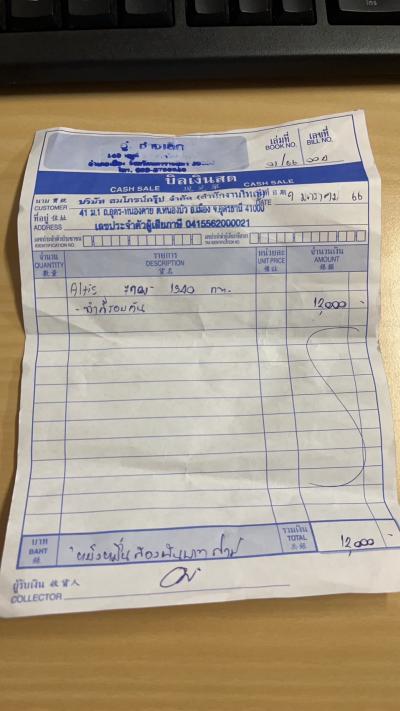 อู่ ช่างเล็ก
เล่มที่ เลขที่
BOOK NO. BILL NO.
01/66 004
บิลเงินสด
CASH SALE 現兌單 CASH SALE
นาม 寶號
CUSTOMER
บริษัท สมโภชน์กรุ๊ป จำกัด (สำนักงานใหญ่)
วันที่ 日期
DATE
9 มกราคม 66
ที่อยู่ 住址
ADDRESS
41 ม.1 ถ.อุดร-หนองคาย ต.หนองบัว อ.เมือง จ.อุดรธานี 41000
เลขประจำตัวผู้เสียภาษี 0415562000021
เลขประจำตัวประชาชน
IDENTIFICATION NO.
เลขประจำตัวผู้เสียภาษีอากร
TAX IDENTIFICATION NO.
จำนวน รายการ หน่วยละ จำนวนเงิน
QUANTITY DESCRIPTION UNIT PRICE AMOUNT
數量 貨名 價銀
Altis 1240 กท.
- ทำสีรอบคัน 12,000 -
บาท
BAHT
銖
หนึ่งหมื่นสองพันบาทถ้วน
รวมเงิน
TOTAL
共銀
12,000 -
ผู้รับเงิน 收貨人
COLLECTOR